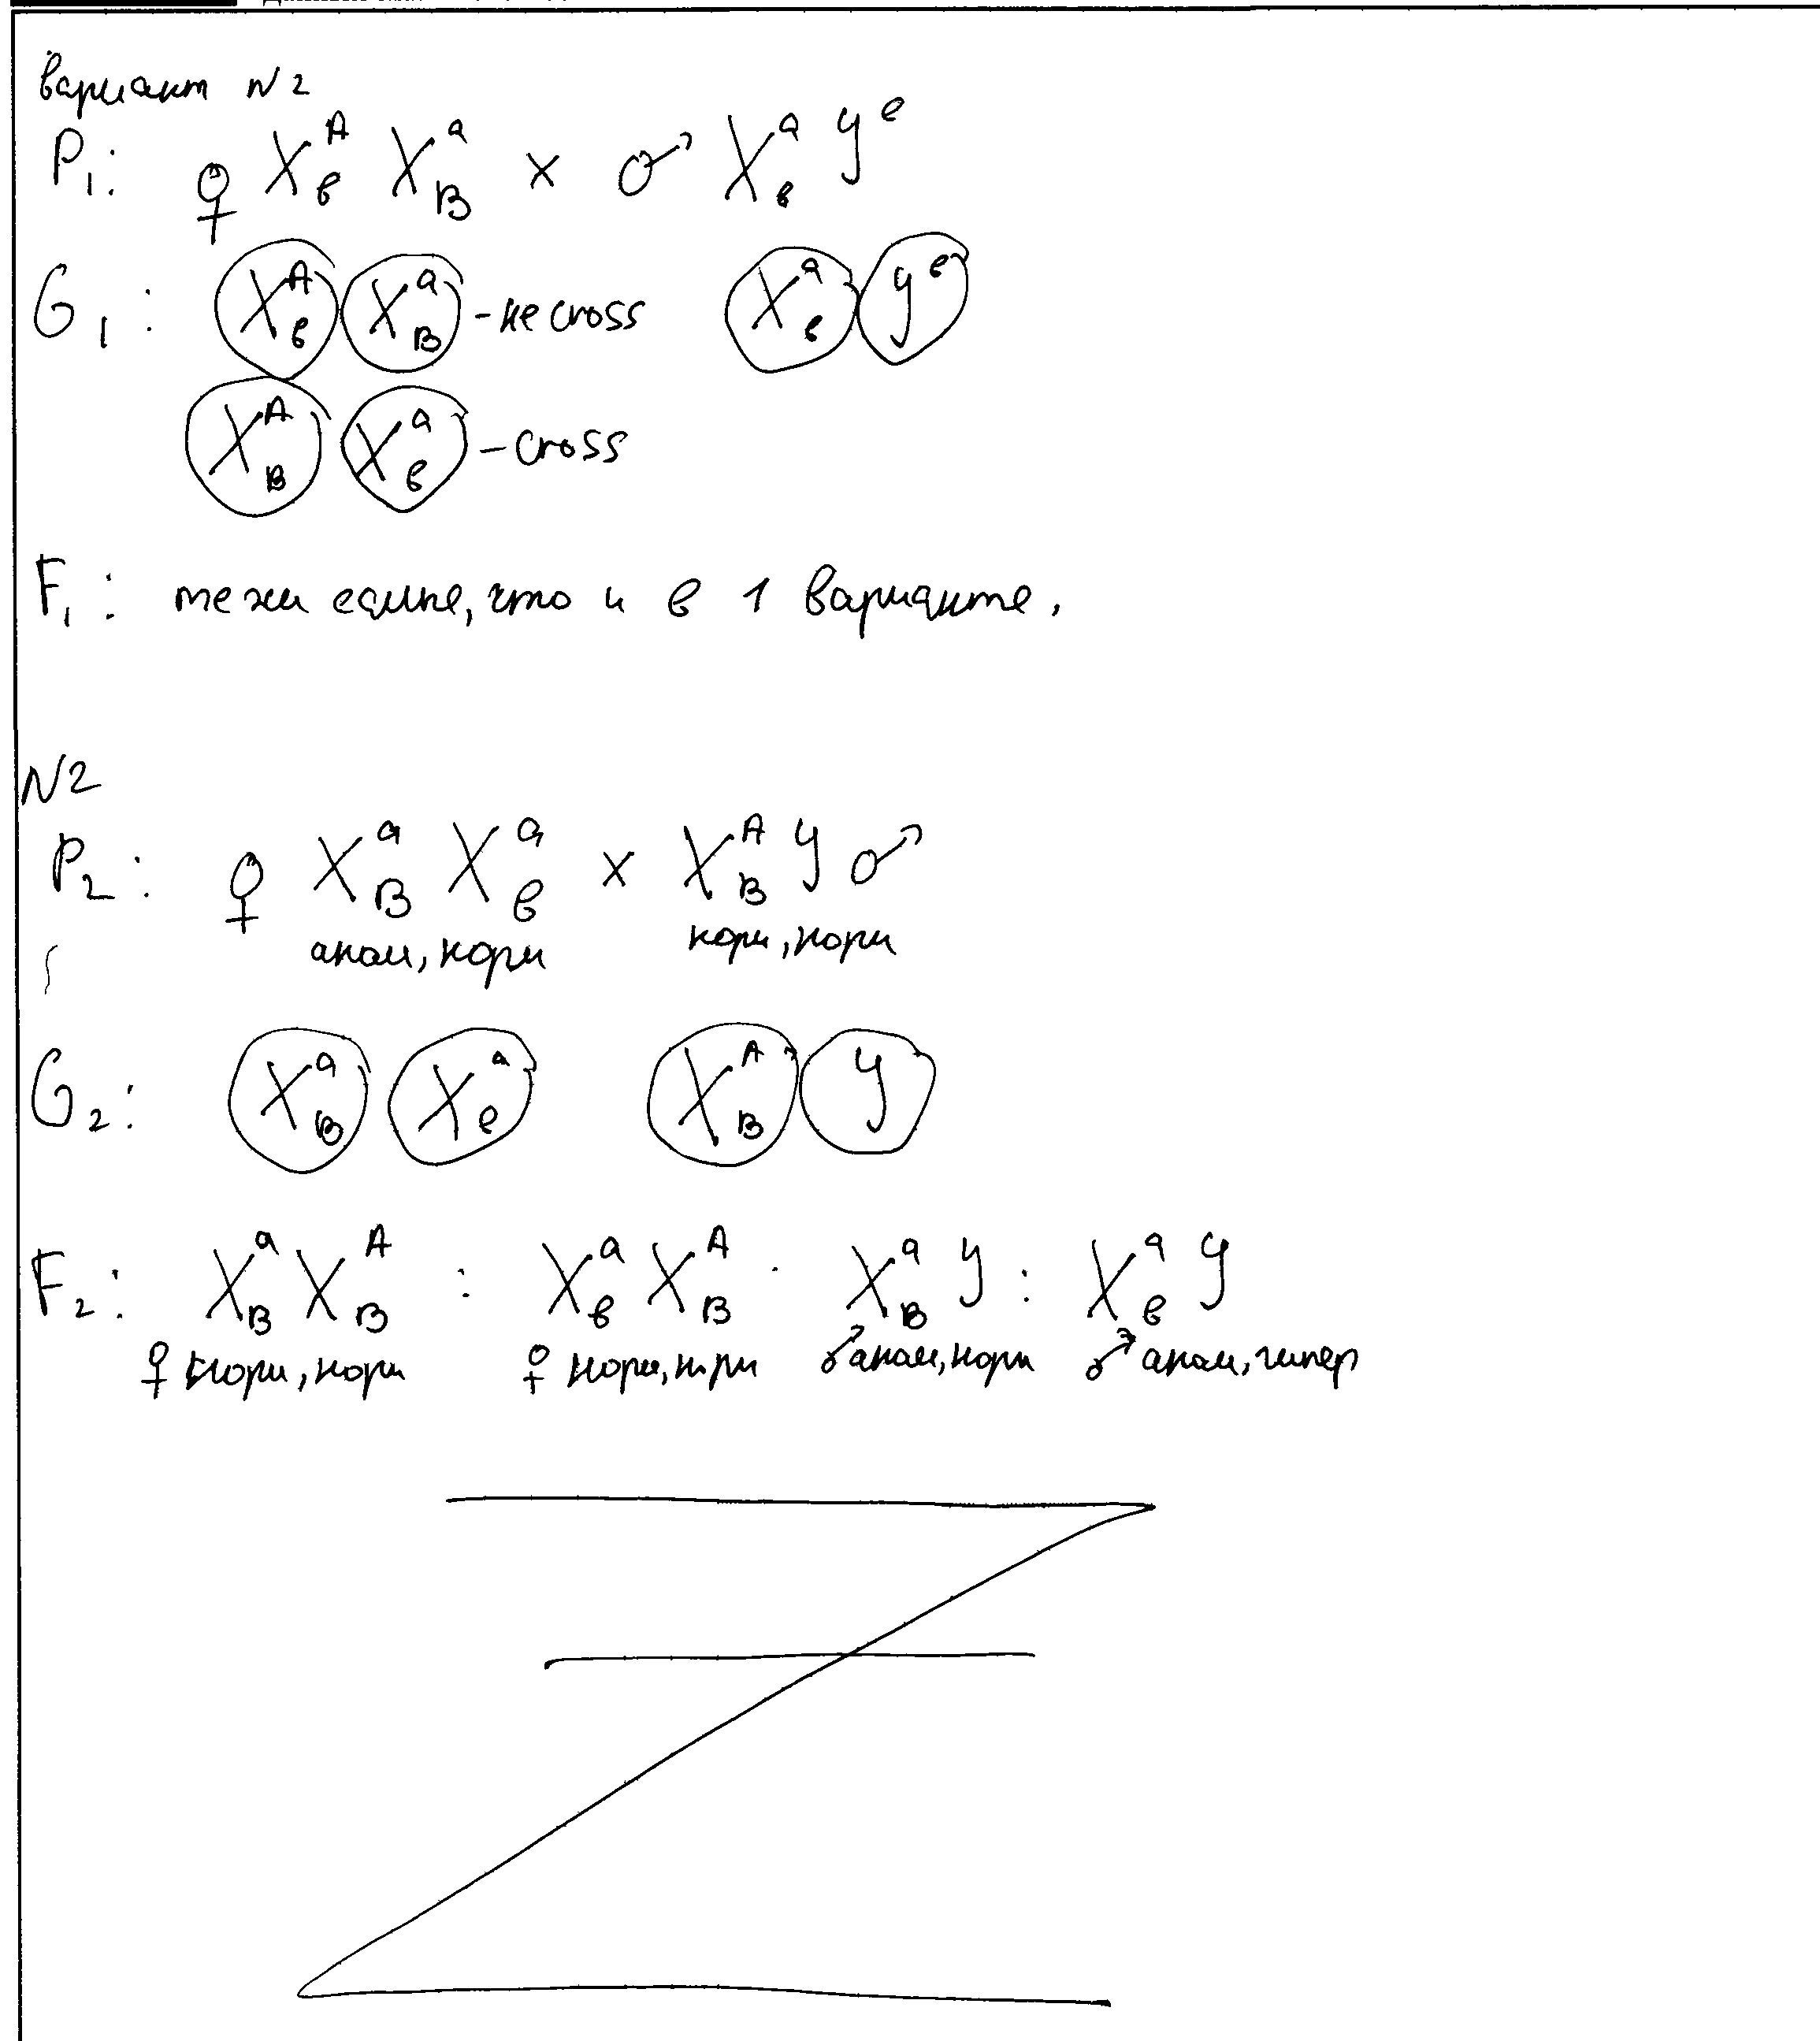 вариант N2
P₁: ♀ Xᴬв XᵃB × ♂ Xᵃв Yᵉ
G₁: Xᴬв XᵃB - не cross Xᵃв Yᵉ
XᴬB Xᵃв - cross
F₁: те же, что и в 1 варианте.
N2
P₂: ♀ XᵃB Xᵃв × XᴬB Y ♂
аном, норм норм, норм
G₂: XᵃB Xᵃв XᴬB Y
F₂: XᵃB XᴬB : Xᵃв XᴬB : XᵃB Y : Xᵃв Y
♀ норм, норм ♀ норм, норм ♂ аном, норм ♂ аном, гипер